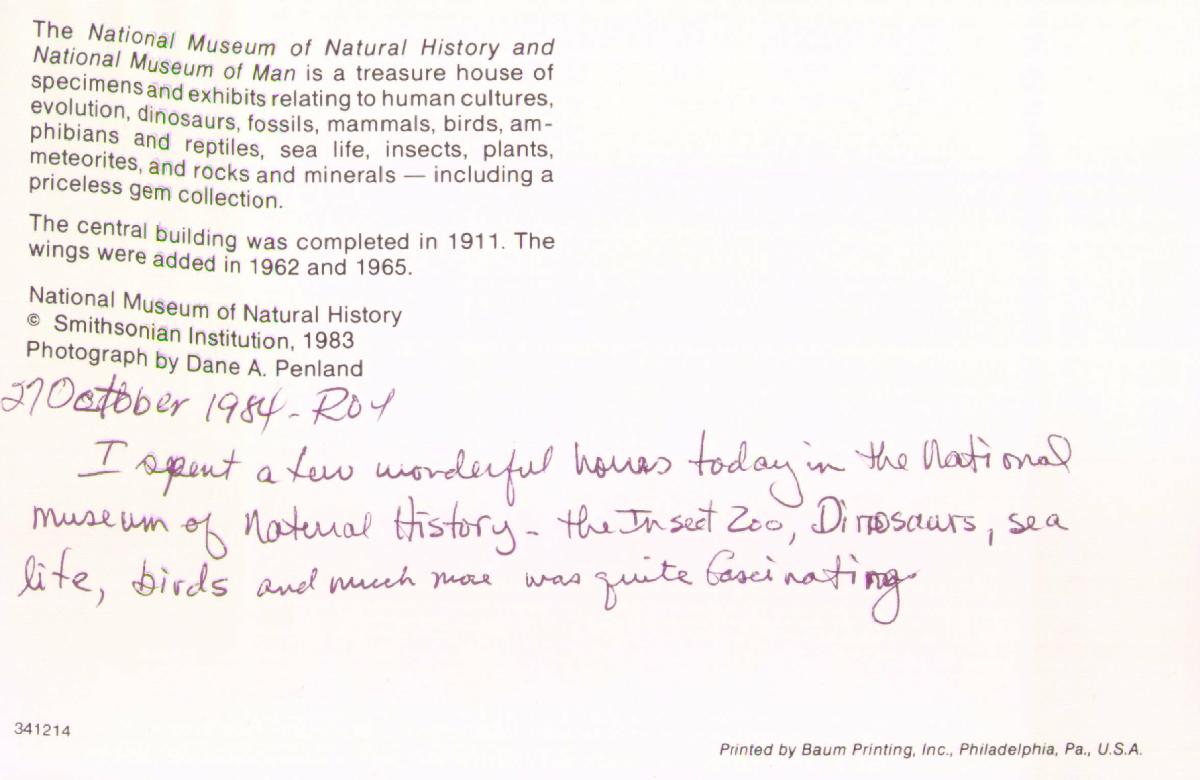 The National Museum of Natural History and
National Museum of Man is a treasure house of
specimens and exhibits relating to human cultures,
evolution, dinosaurs, fossils, mammals, birds, am-
phibians and reptiles, sea life, insects, plants,
meteorites, and rocks and minerals — including a
priceless gem collection.
The central building was completed in 1911. The
wings were added in 1962 and 1965.
National Museum of Natural History
© Smithsonian Institution, 1983
Photograph by Dane A. Penland
27 October 1984 - Roy
I spent a few wonderful hours today in the National
museum of Natural History - the Insect Zoo, Dinosaurs, sea
life, birds and much more was quite fascinating.
341214
Printed by Baum Printing, Inc., Philadelphia, Pa., U.S.A.